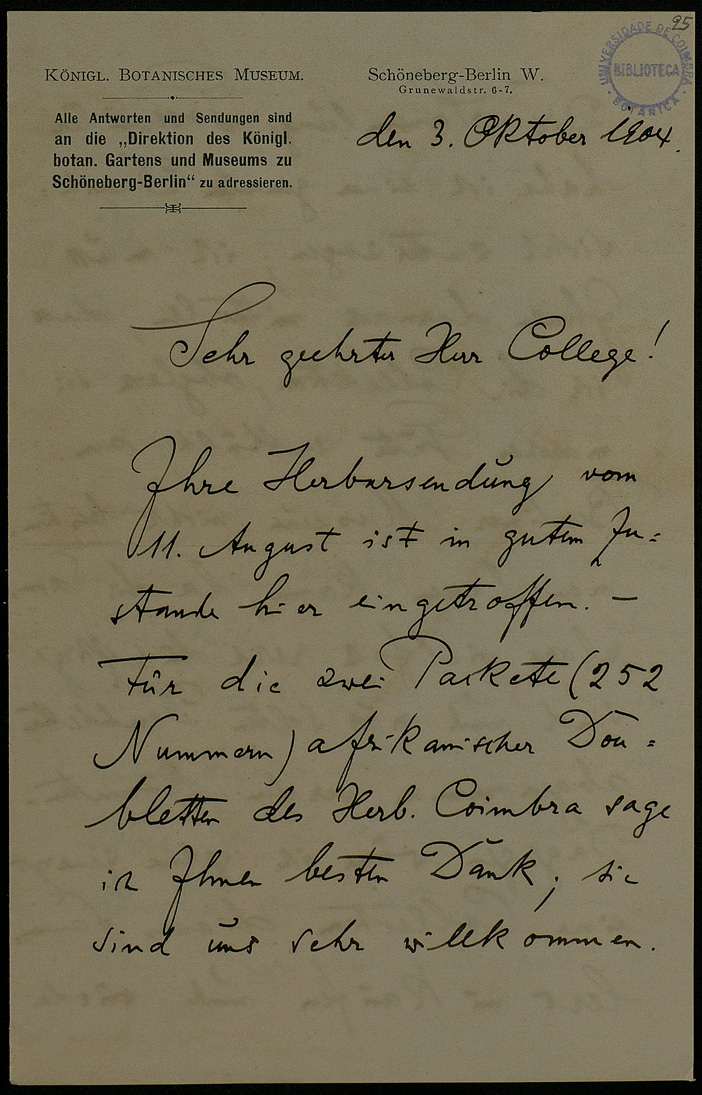 25
UNIVERSIDADE DE COIMBRA
BIBLIOTECA
BOTANICA
KÖNIGL. BOTANISCHES MUSEUM.
Schöneberg-Berlin W.
Grunewaldstr. 6-7.
Alle Antworten und Sendungen sind
an die „Direktion des Königl.
botan. Gartens und Museums zu
Schöneberg-Berlin“ zu adressieren.
den 3. Oktober 1904.
Sehr geehrter Herr College!
Ihre Herbarsendung vom
11. August ist in gutem Zu=
stande hier eingetroffen. –
Für die zwei Packete (252
Nummern) afrikanischer Dou=
bletten des Herb. Coimbra sage
ich Ihnen besten Dank; sie
sind uns sehr willkommen.